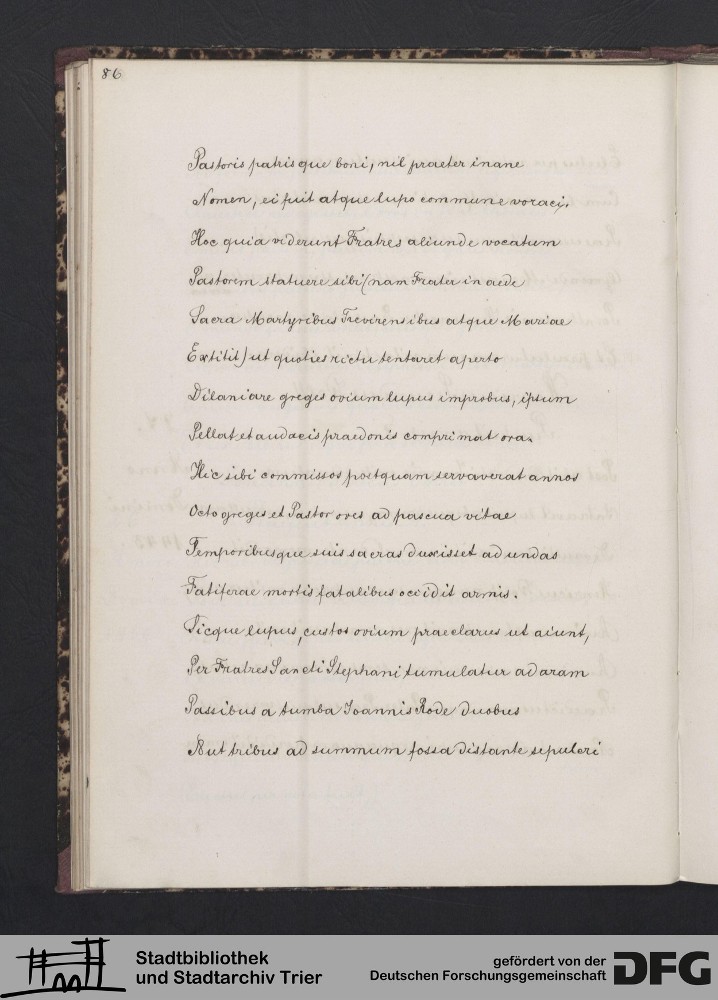 86
Pastoris patrisque boni, nil praeter inane
Nomen, ei fuit atque lupo commune voraci.
Hoc quia viderunt Fratres aliunde vocatum
Pastorem statuere sibi (nam Frater in aede
Sacra Martyribus Trevirensibus atque Mariae
Extitit) ut quoties rictu tentaret aperto
Dilaniare greges ovium lupus improbus, ipsum
Pellat et audacis praedonis comprimat ora.
Hic sibi commissos postquam servaverat annos
Octo greges et Pastor oves ad pascua vitae
Temporibusque suis sacras duxisset ad undas
Fatiferae mortis fatalibus occidit armis.
Sicque lupus, custos ovium praeclarus ut aiunt,
Per Fratres Sancti Stephani tumulatur ad aram
Passibus a tumba Joannis Rode duobus
Aut tribus ad summum fossa distante sepulcri
Stadtbibliothek
und Stadtarchiv Trier
gefördert von der
Deutschen Forschungsgemeinschaft
DFG